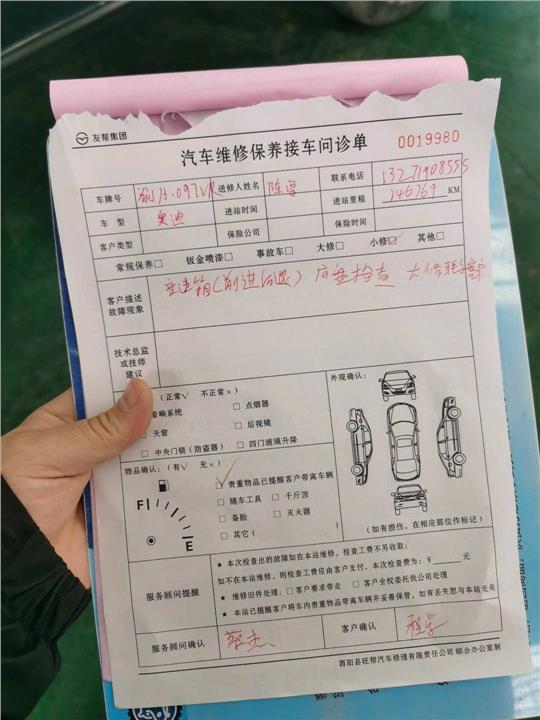 友帮集团
汽车维修保养接车问诊单 0019980
车牌号 送修人姓名 陈 联系电话 13271908555
车型 奥迪 进站时间 进站里程 146769 KM
客户类型 保险公司 保险时间
常规保养□ 钣金喷漆□ 事故车□ 大修□ 小修☑ 其他□
客户描述故障现象 变速箱(前进后退) 底盘检查 大修联
技术总监或技师建议
(正常√ 不正常×) 外观确认:
音响系统 □ 点烟器
天窗 □ 后视镜
□ 中央门锁(防盗器) □ 四门玻璃升降
物品确认:(有√ 无×) ☑ 贵重物品已提醒客户带离车辆
F □ 随车工具 □ 千斤顶
□ 备胎 □ 灭火器
E □ 其它( ) (如有损伤,在相应部位作标记)
服务顾问提醒
★ 本次检查出的故障如在本站维修,检查工费不另收取;
如不在本站维修,则检查工费应由客户支付,本次检查费为:¥ 元
★ 维修旧件处理:□ 客户要求带走 □ 客户全权委托我公司处理
★ 本站已提醒客户将车内贵重物品带离车辆并妥善保管,如有丢失恕与本站无关
服务顾问确认 蔡杰 客户确认
酉阳县旺帮汽车修理有限责任公司 综合办公室制